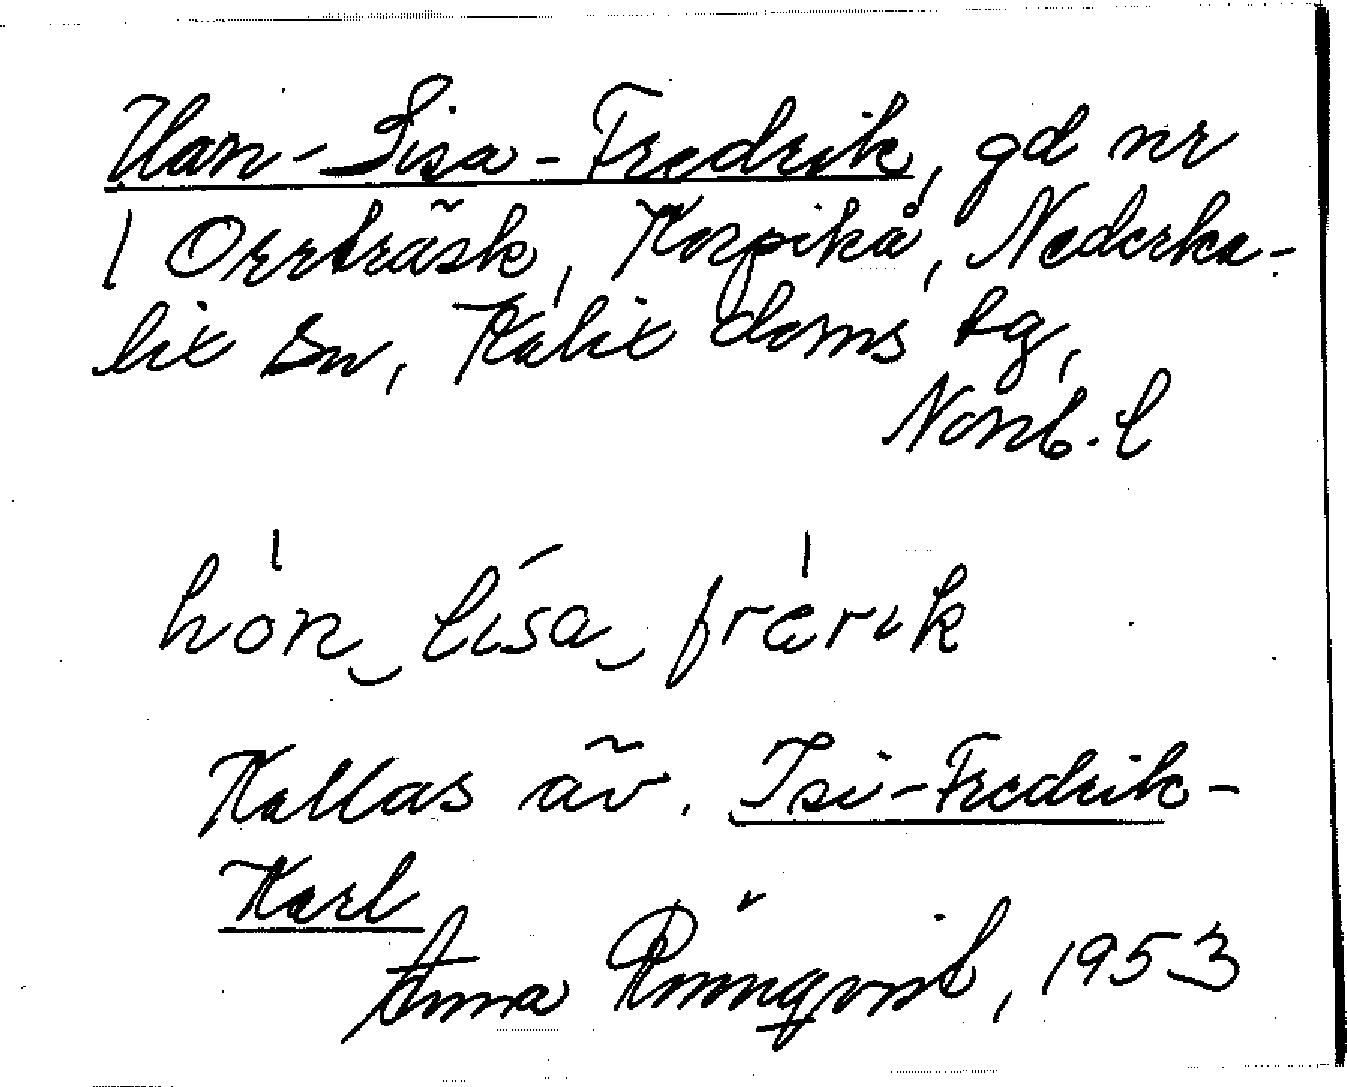 Han-Lisa-Fredrik, gd nr
1 Orrträsk, Korpikå, Nederka-
lix sn, Kalix doms tg,
Norrb. l
hòn‿lísa‿frærik
Kallas äv. Isi-Fredrik-
Karl
Anna Rönnqvist, 1953